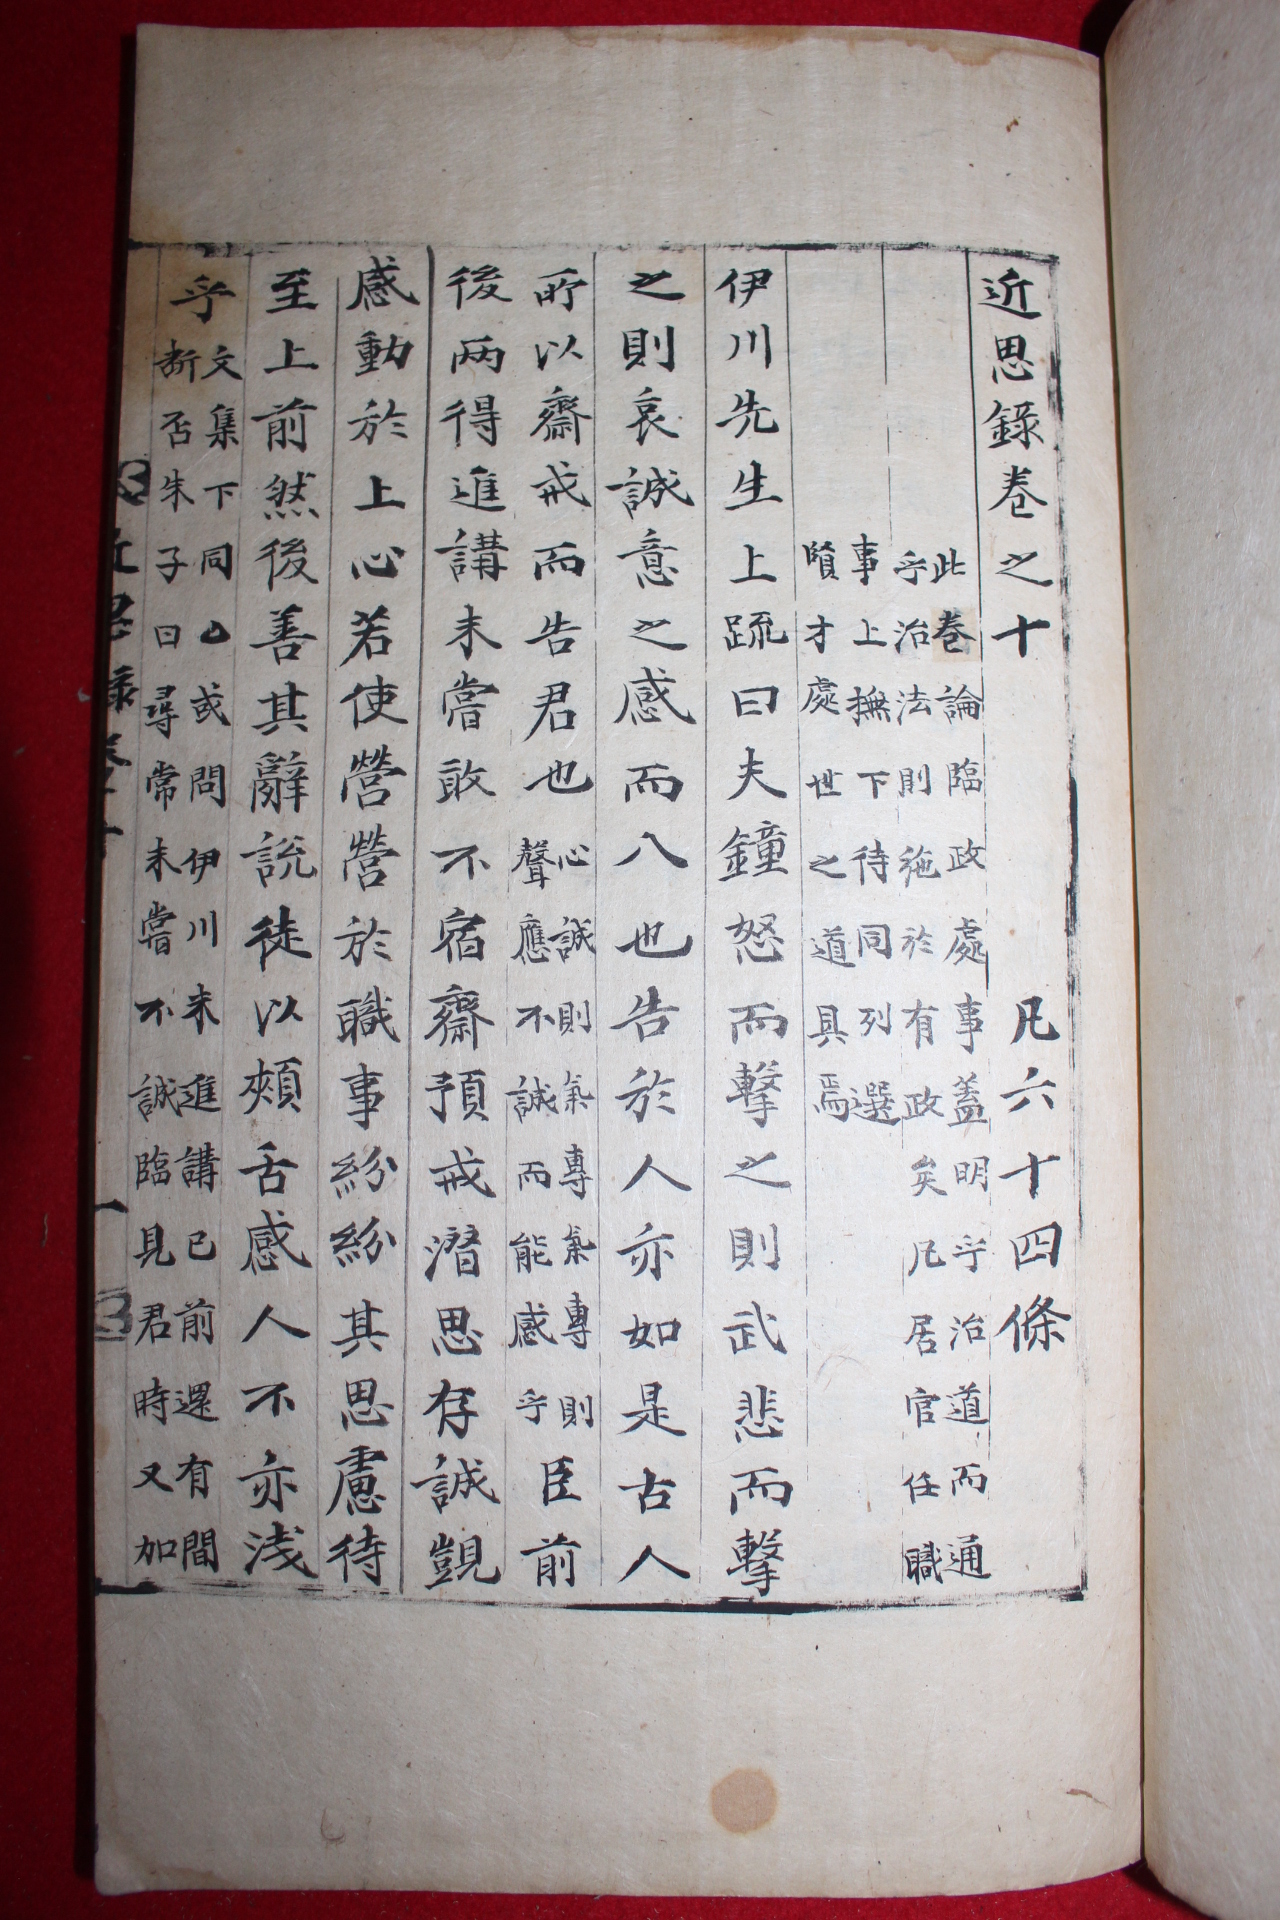 近思錄卷之十 凡六十四條
此卷論臨政處事蓋明乎治道而通
乎治法則施於有政矣凡居官任職
事上撫下待同列選
賢才處世之道具焉
伊川先生上疏曰夫鐘怒而擊之則武悲而擊
之則哀誠意之感而入也告於人亦如是古人
所以齋戒而告君也
心誠則氣專氣專則
聲應不誠而能感乎
臣前
後两得進講未嘗敢不宿齋預戒潛思存誠覬
感動於上心若使營營於職事紛紛其思慮待
至上前然後善其辭說徒以頰舌感人不亦浅
乎
文集下同 或問伊川未進講已前還有間
断否朱子曰尋常未嘗不誠臨見君時又加
近思錄卷之十 一